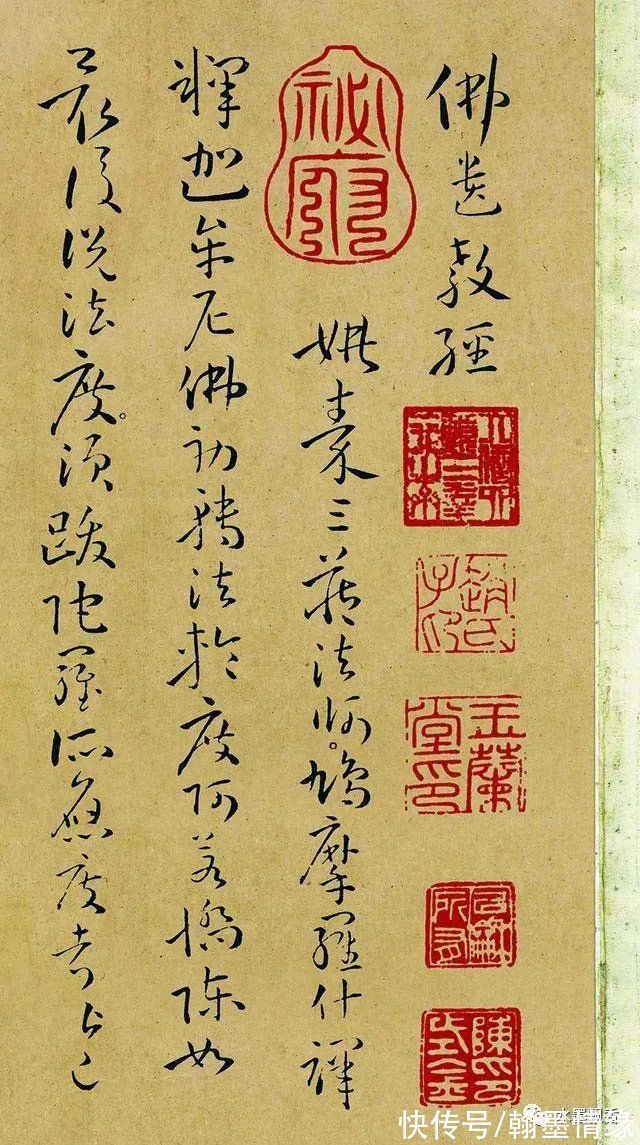 佛遺教經
玉蘭堂印
祕府
姚秦三藏法師鳩摩羅什譯
釋迦牟尼佛初轉法輪度阿若憍陳如
最後說法度須跋陀羅所應度者皆已
快传号/翰墨情缘